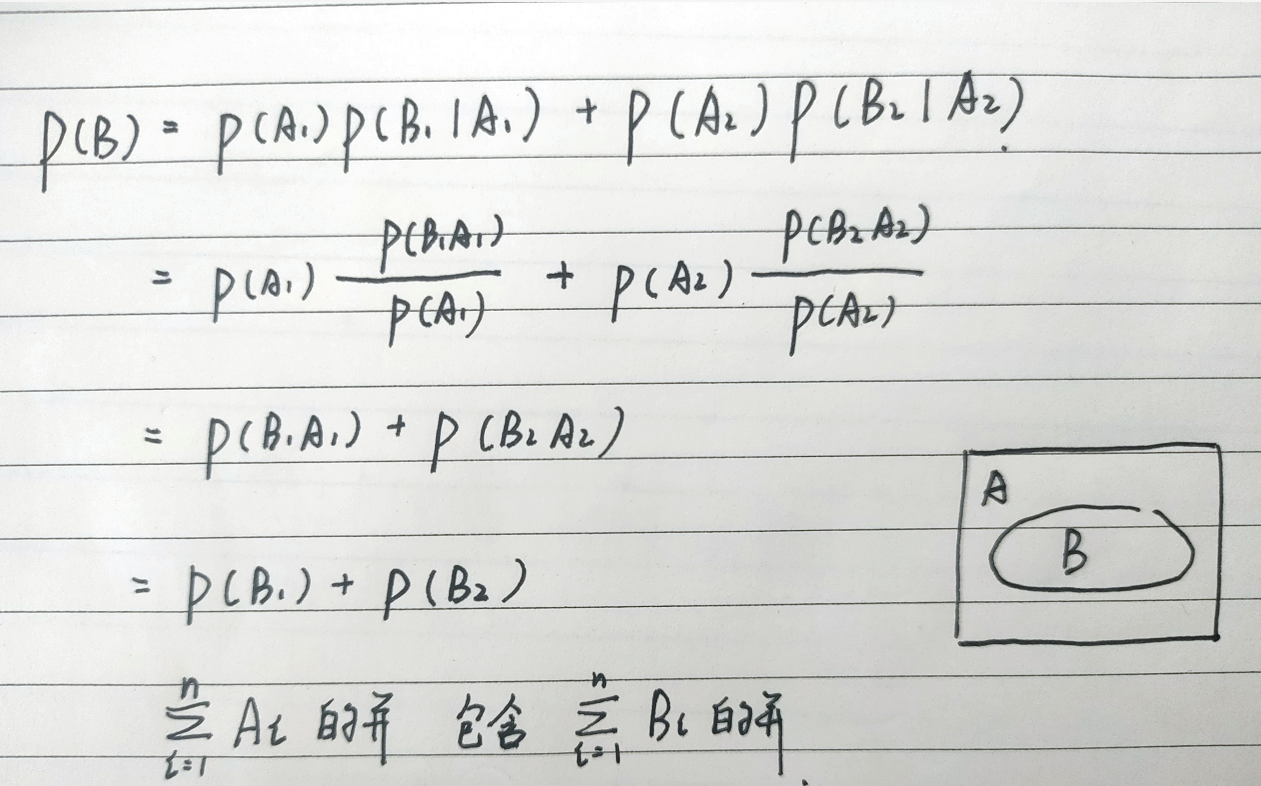 P(B) = P(A₁)P(B₁|A₁) + P(A₂)P(B₂|A₂).
= P(A₁) P(B₁A₁)/P(A₁) + P(A₂) P(B₂A₂)/P(A₂)
= P(B₁A₁) + P(B₂A₂)
A
B
= P(B₁) + P(B₂)
∑ⁿᵢ₌₁ Aᵢ 的并 包含 ∑ⁿᵢ₌₁ Bᵢ 的并.